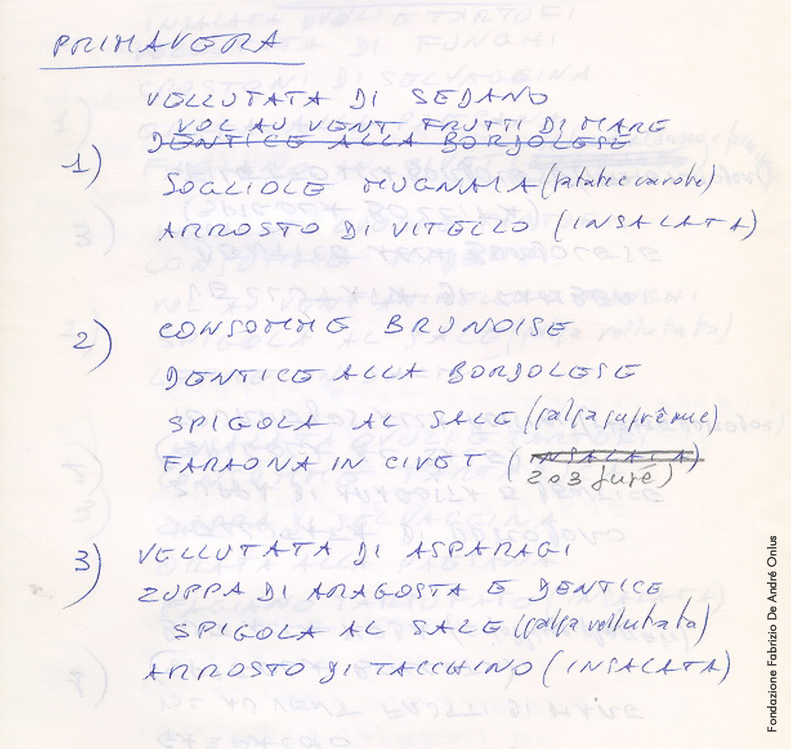 PRIMAVERA
VELLUTATA DI SEDANO
VOL AU VENT FRUTTI DI MARE
DENTICE ALLA BORDOLESE
1)
SOGLIOLE MUGNAIA (patate e carote)
ARROSTO DI VITELLO (INSALATA)
2) CONSOMME BRUNOISE
DENTICE ALLA BORDOLESE
SPIGOLA AL SALE (salsa suprême)
FARAONA IN CIVET (INSALATA)
2 o 3 puré)
3) VELLUTATA DI ASPARAGI
ZUPPA DI ARAGOSTA E DENTICE
SPIGOLA AL SALE (salsa vellutata)
ARROSTO DI TACCHINO (INSALATA)
Fondazione Fabrizio De André Onlus